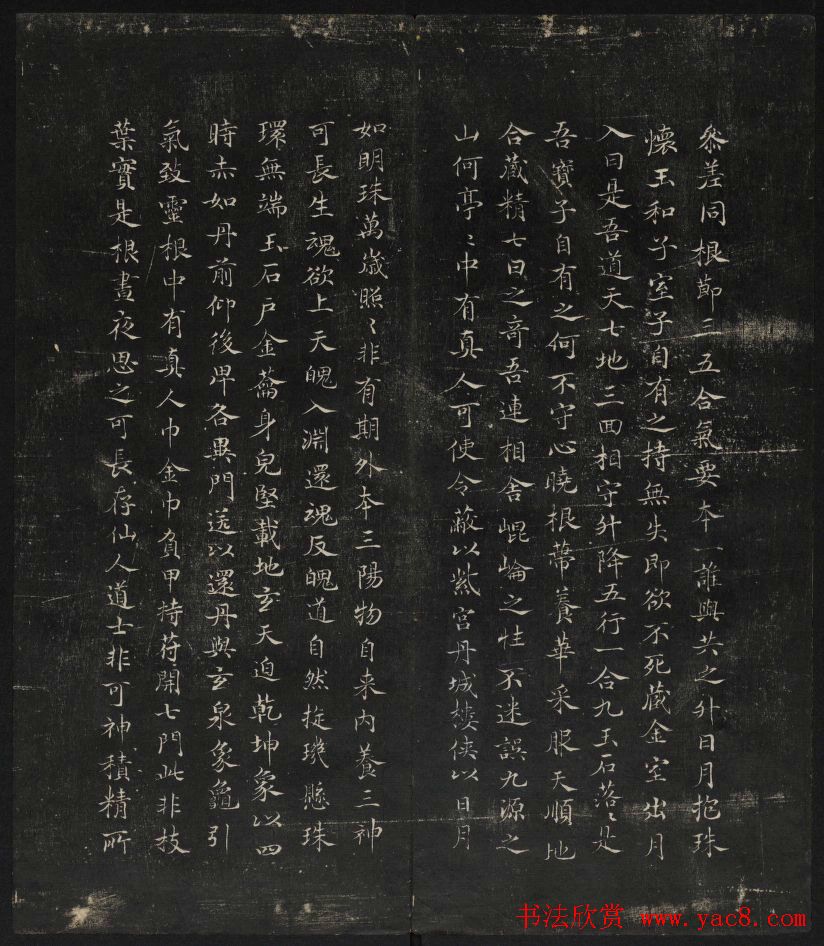 參差同根節三五合氣要本一誰與共之升日月抱珠
懷玉和子室子自有之持無失即欲不死藏金室出月
入日是吾道天七地三回相守升降五行一合九玉石落〻是
吾寶子自有之何不守心曉根蒂養華采服天順地
合藏精七日之奇吾連相舍崐崘之性不迷誤九源之
山何亭〻中有真人可使令蔽以紫宮丹城樓俠以日月
如明珠萬歲照〻非有期外本三陽物自来內養三神
可長生魂欲上天魄入淵還魂反魄道自然㨁璣懸珠
環無端玉石戶金籥身皃堅載地玄天迫乾坤象以四
時赤如丹前仰後卑各異門送以還丹與玄泉象龜引
氣致靈根中有真人巾金巾負甲持苻開七門此非枝
葉實是根晝夜思之可長存仙人道士非可神積精所
书法欣赏 www.yac8.com